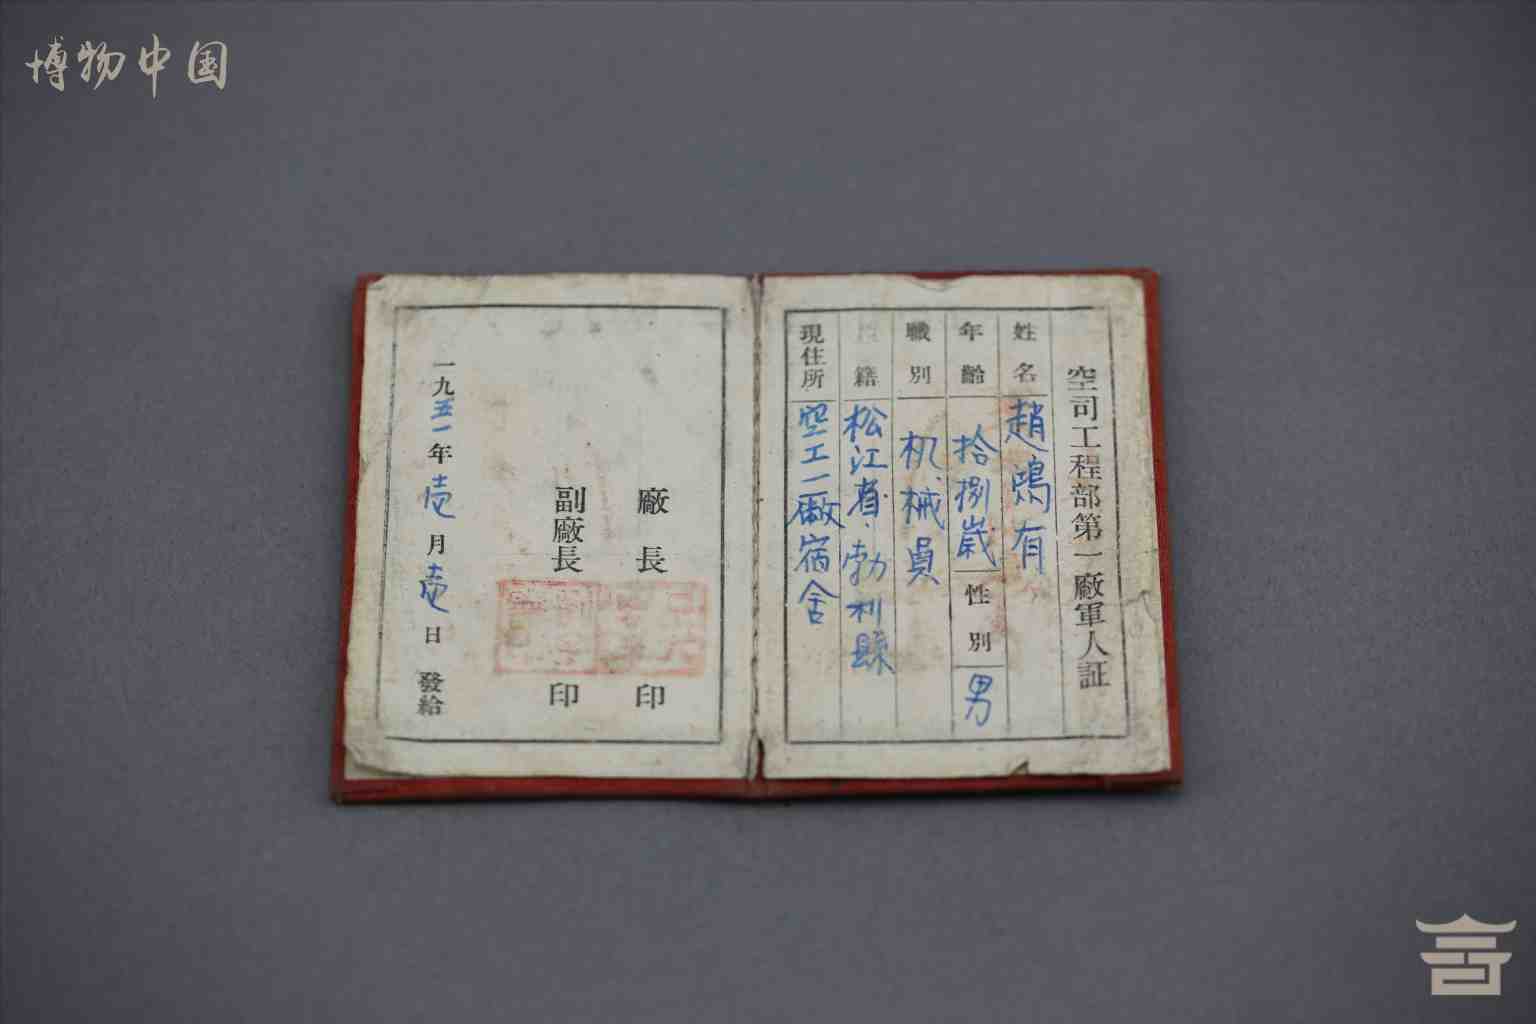 博物中国
空司工程部第一廠軍人証
姓名 趙鴻有
年齡 拾捌歲 性別 男
職別 机械員
籍 松江省勃利縣
現住所 空工一廠宿舍
廠長 印
副廠長 印
一九五一年壹月壹日 發給